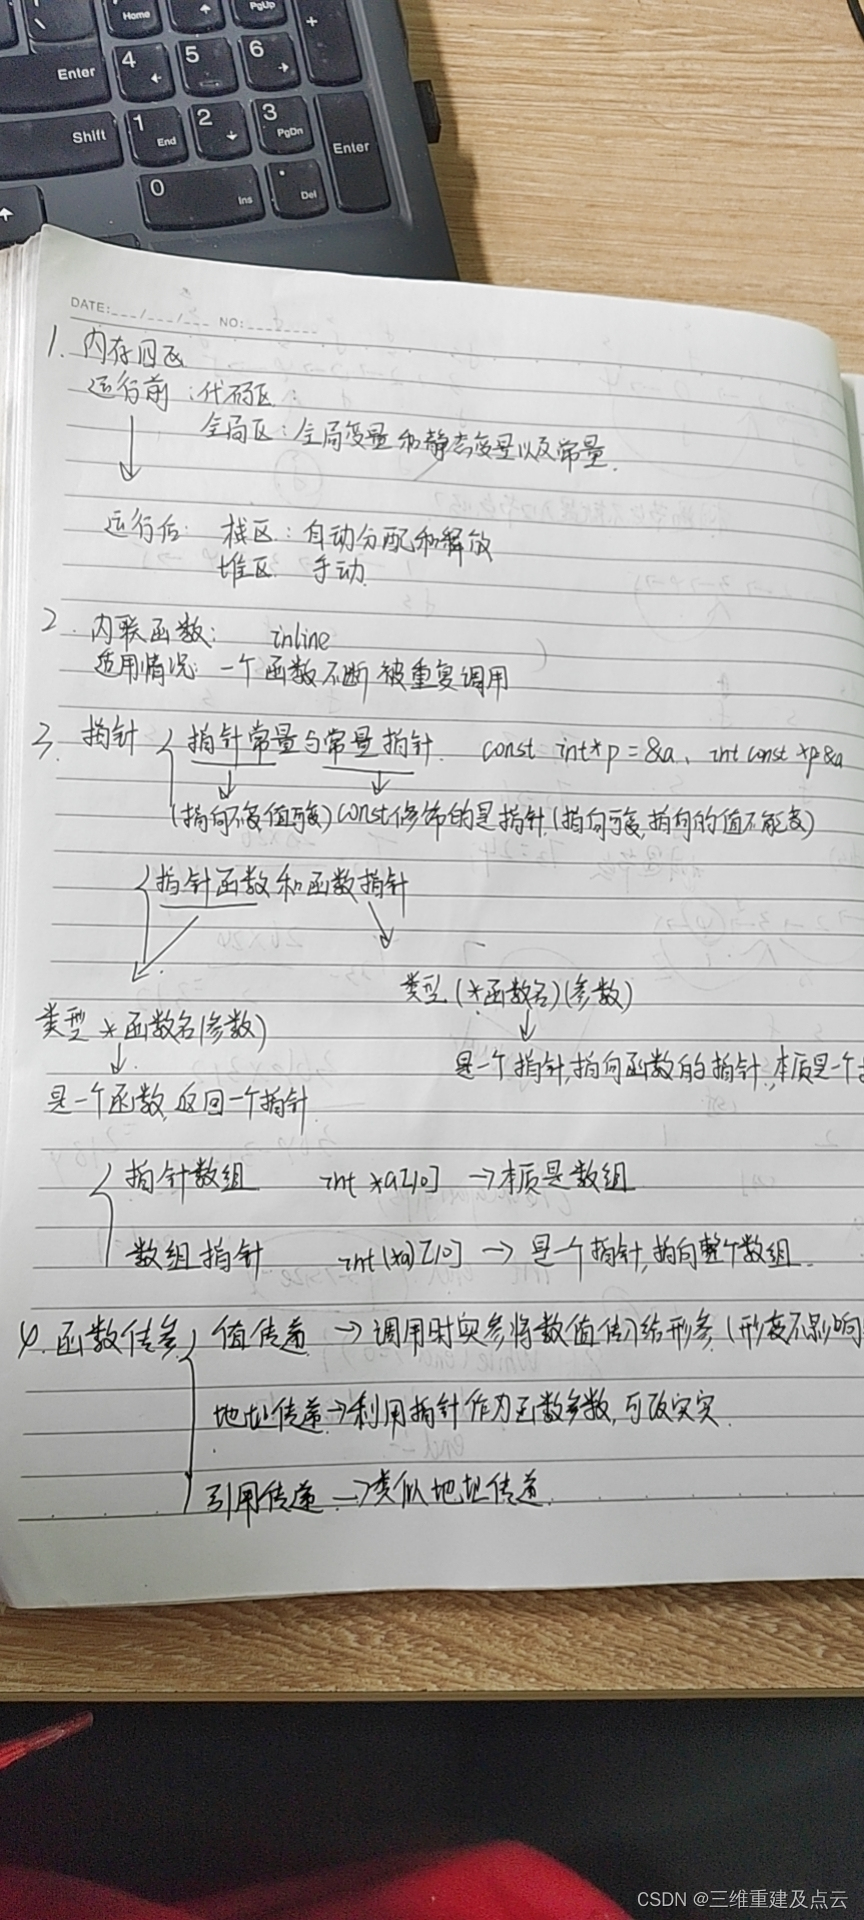 Home
PgUp
+
Enter
4
5
6
Shift
1
End
2
3
PgDn
Enter
0
Ins
.
Del
DATE:___/___/___ NO:________
1. 内存四区
运行前:代码区:
全局区:全局变量和静态变量以及常量.
运行后: 栈区:自动分配和释放
堆区: 手动.
2. 内联函数: inline
适用情况: 一个函数不断被重复调用
3. 指针 { 指针常量与常量指针. const int*p=&a、int const *p &a
(指向不变值可变) const修饰的是指针.(指向可变,指向的值不能变)
{ 指针函数和函数指针
类型 (*函数名)(参数)
类型 *函数名(参数)
是一个指针,指向函数的指针.,本质是一个
是一个函数,返回一个指针.
{ 指针数组 int *a[10] →本质是数组
数组指针 int(*a)[10] → 是一个指针,指向整个数组.
4. 函数传参 { 值传递 →调用时实参将数值传入给形参.(形变不影响
地址传递→利用指针作为函数参数,可改实
引用传递 →类似地址传递.
CSDN @三维重建及点云